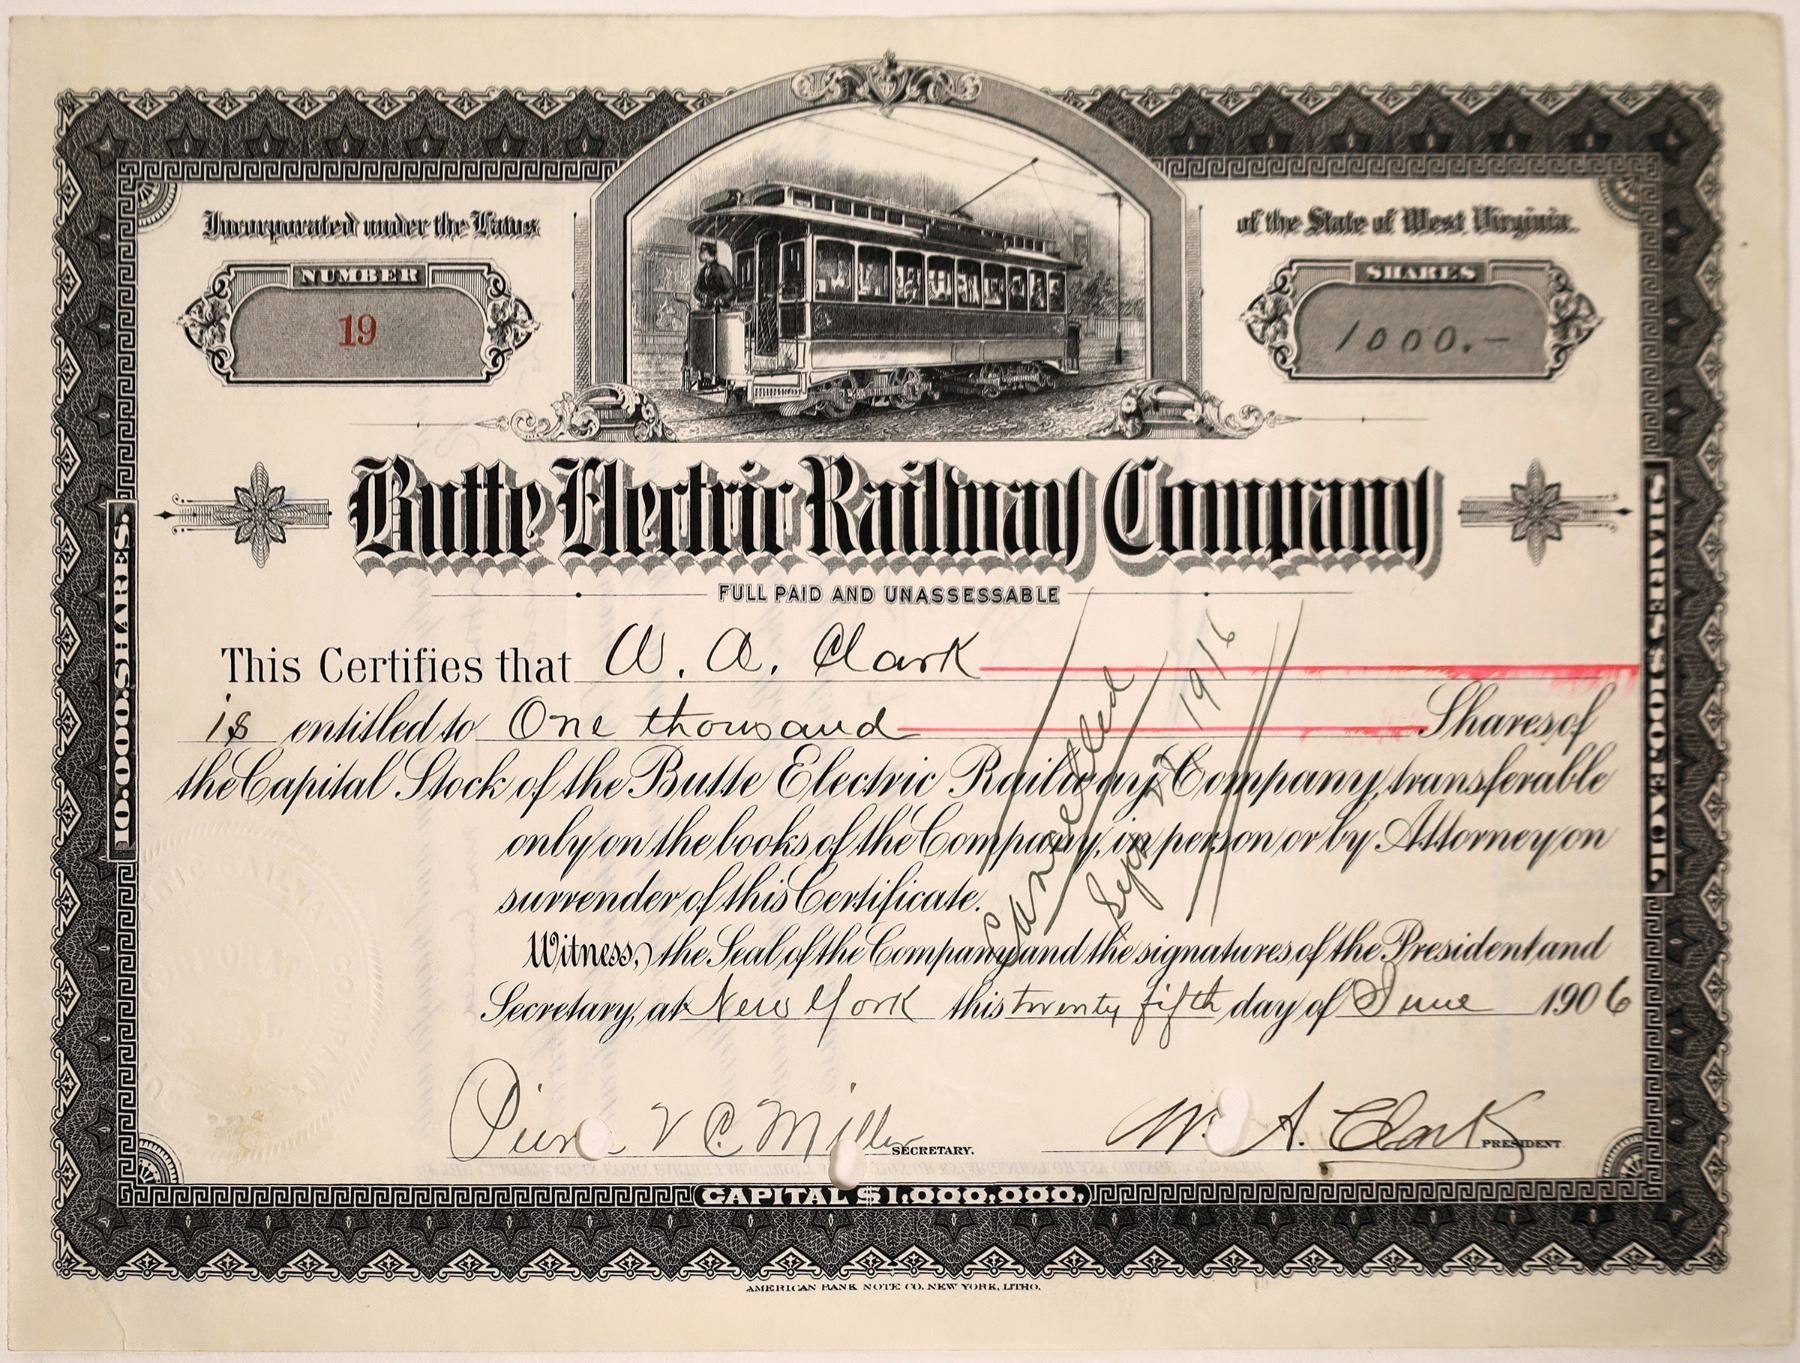 Incorporated under the Laws of the State of West Virginia.
NUMBER
19
SHARES
1000.-
Butte Electric Railway Company
FULL PAID AND UNASSESSABLE
This Certifies that W. A. Clark
is entitled to One thousand Shares of
the Capital Stock of the Butte Electric Railway Company, transferable
only on the books of the Company, in person or by Attorney on
surrender of this Certificate.
Witness, the Seal of the Company and the signatures of the President and
Secretary, at New York this twenty fifth day of June 1906
Cancelled
Sept 1916
Miller SECRETARY.
W. A. Clark PRESIDENT
10.000. SHARES.
SHARES $100. EACH.
CAPITAL $1.000.000.
AMERICAN BANK NOTE CO. NEW YORK, LITHO.